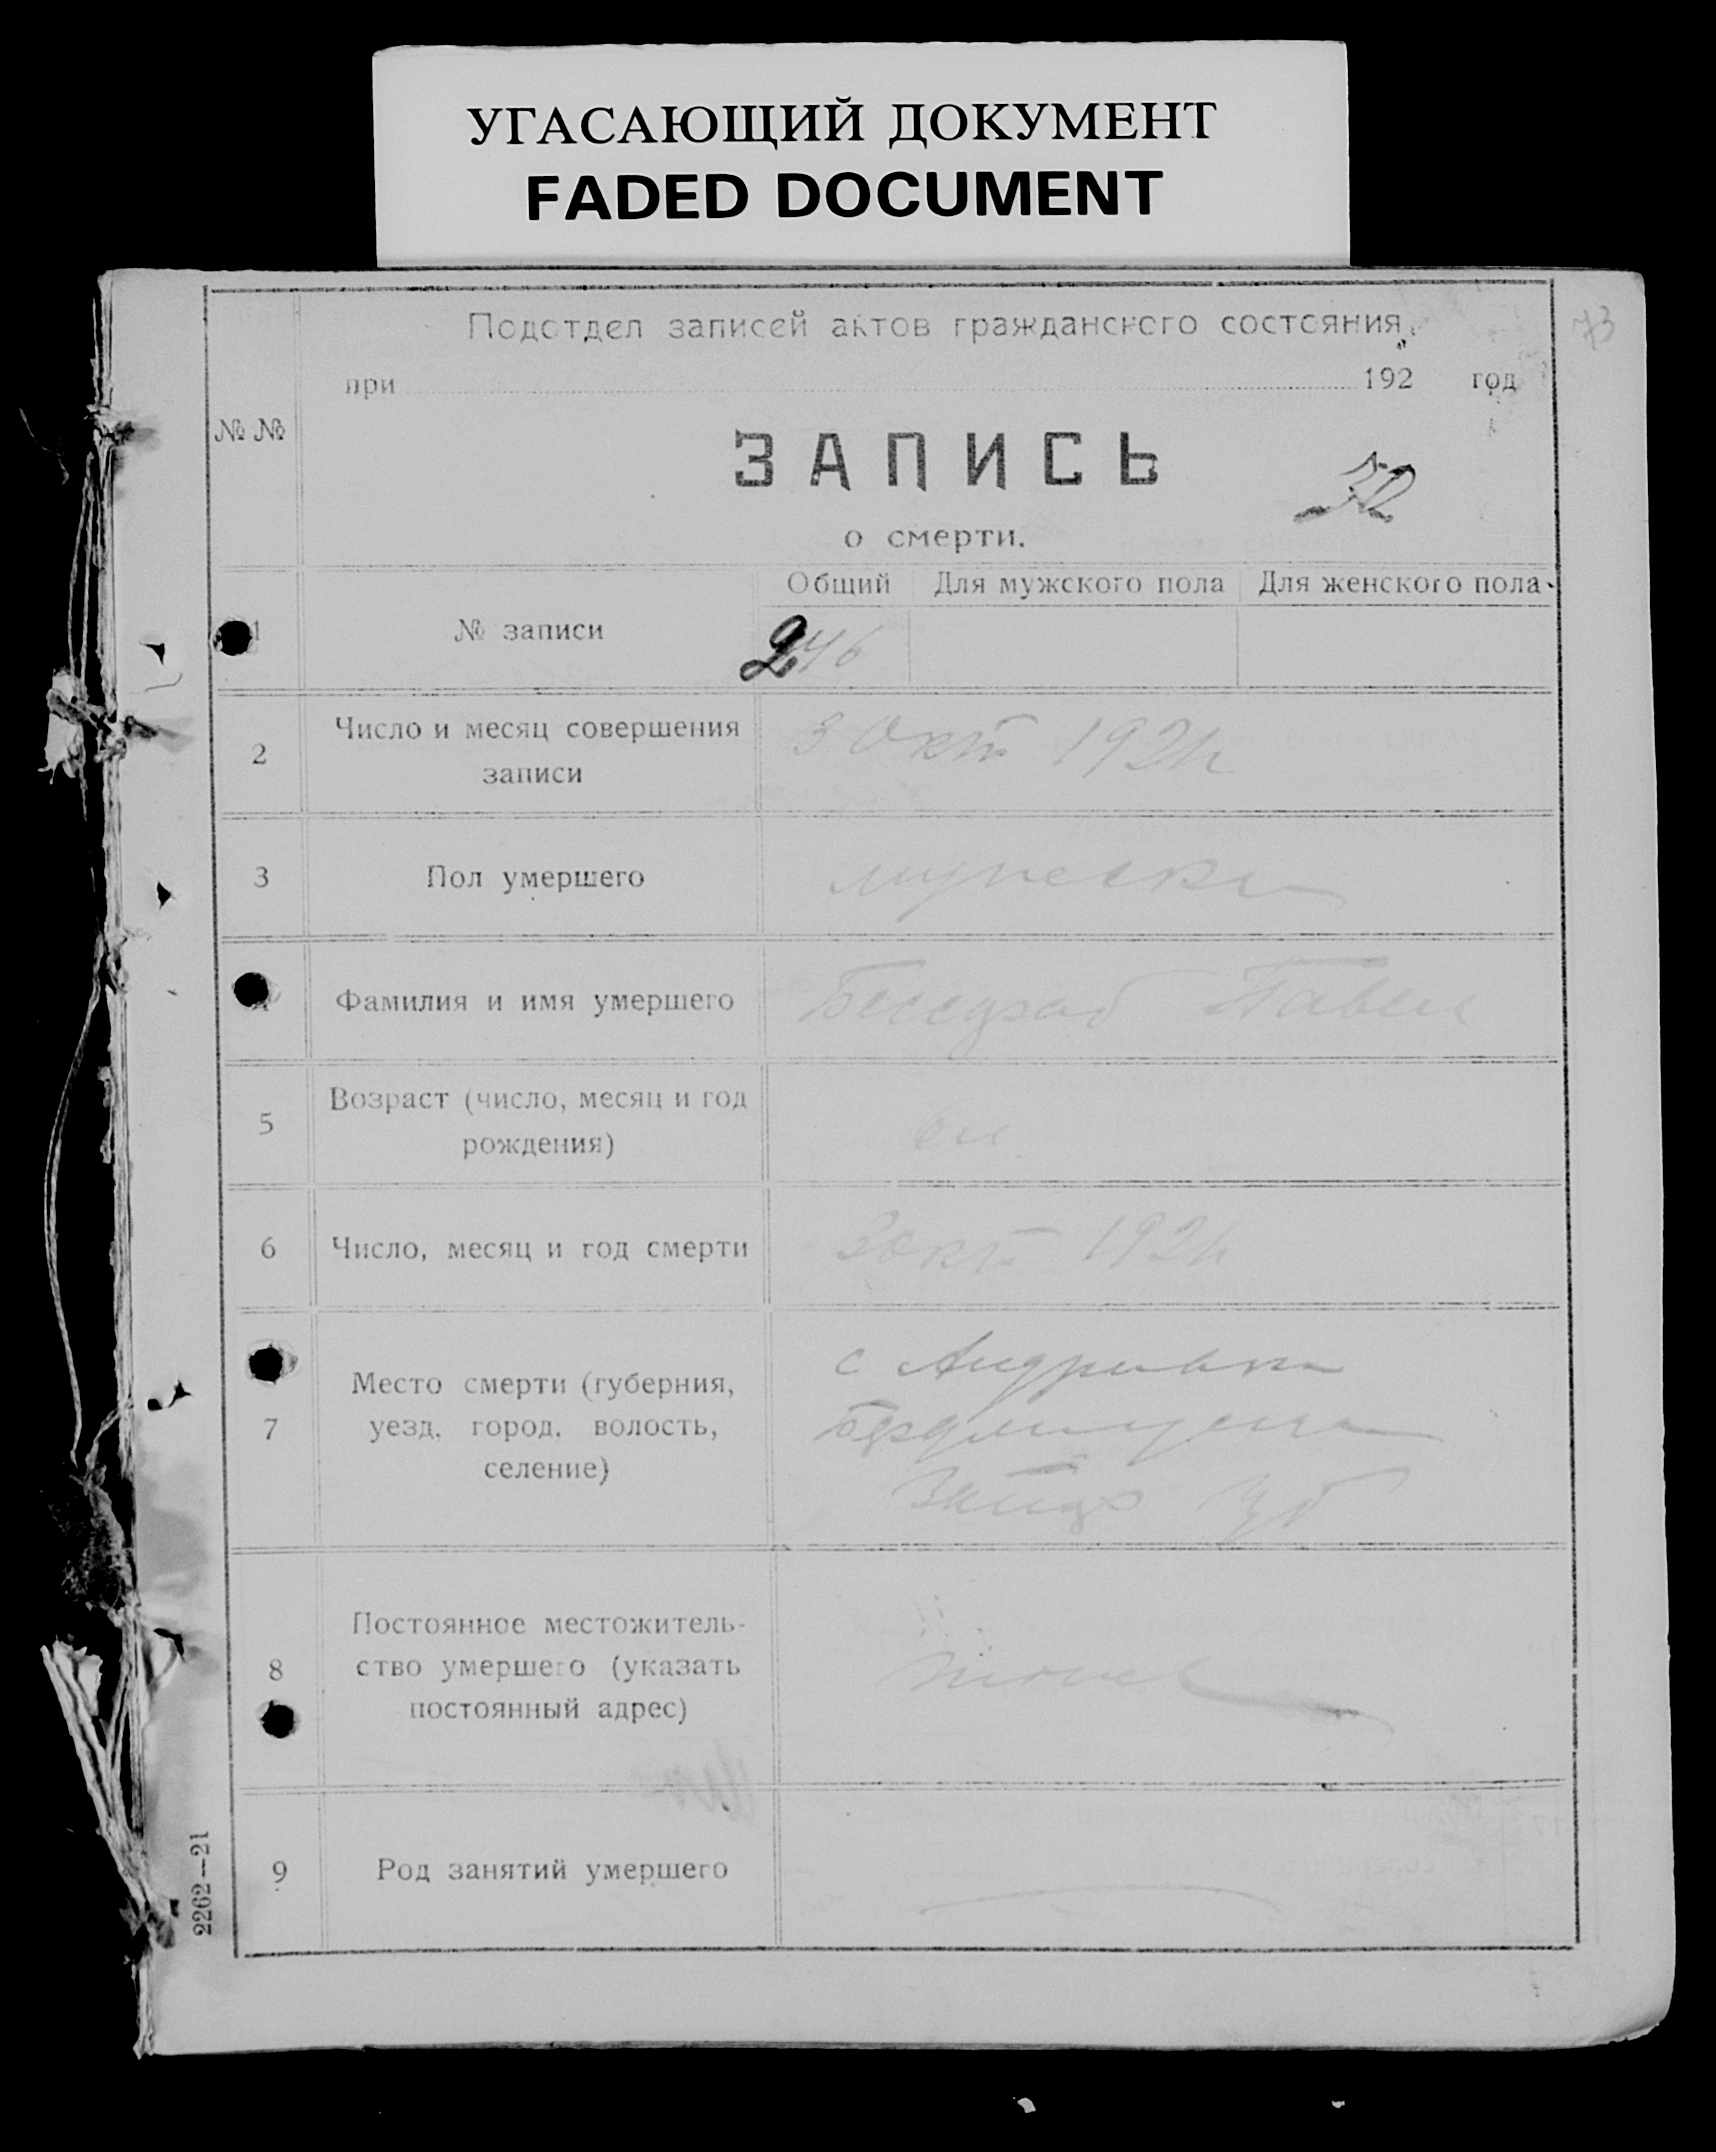 УГАСАЮЩИЙ ДОКУМЕНТ
FADED DOCUMENT
73
Подотдел записей актов гражданского состояния,
при 192 год
№ №
ЗАПИСЬ
32
о смерти.
Общий Для мужского пола Для женского пола
1 № записи 246
2 Число и месяц совершения
записи
3 Окт 192
3 Пол умершего
Фамилия и имя умершего Павел
5 Возраст (число, месяц и год
рождения)
6 Число, месяц и год смерти 3 окт 192
7 Место смерти (губерния,
уезд, город, волость,
селение)
с Андривка
8 Постоянное местожитель-
ство умершего (указать
постоянный адрес)
9 Род занятий умершего
2262—21